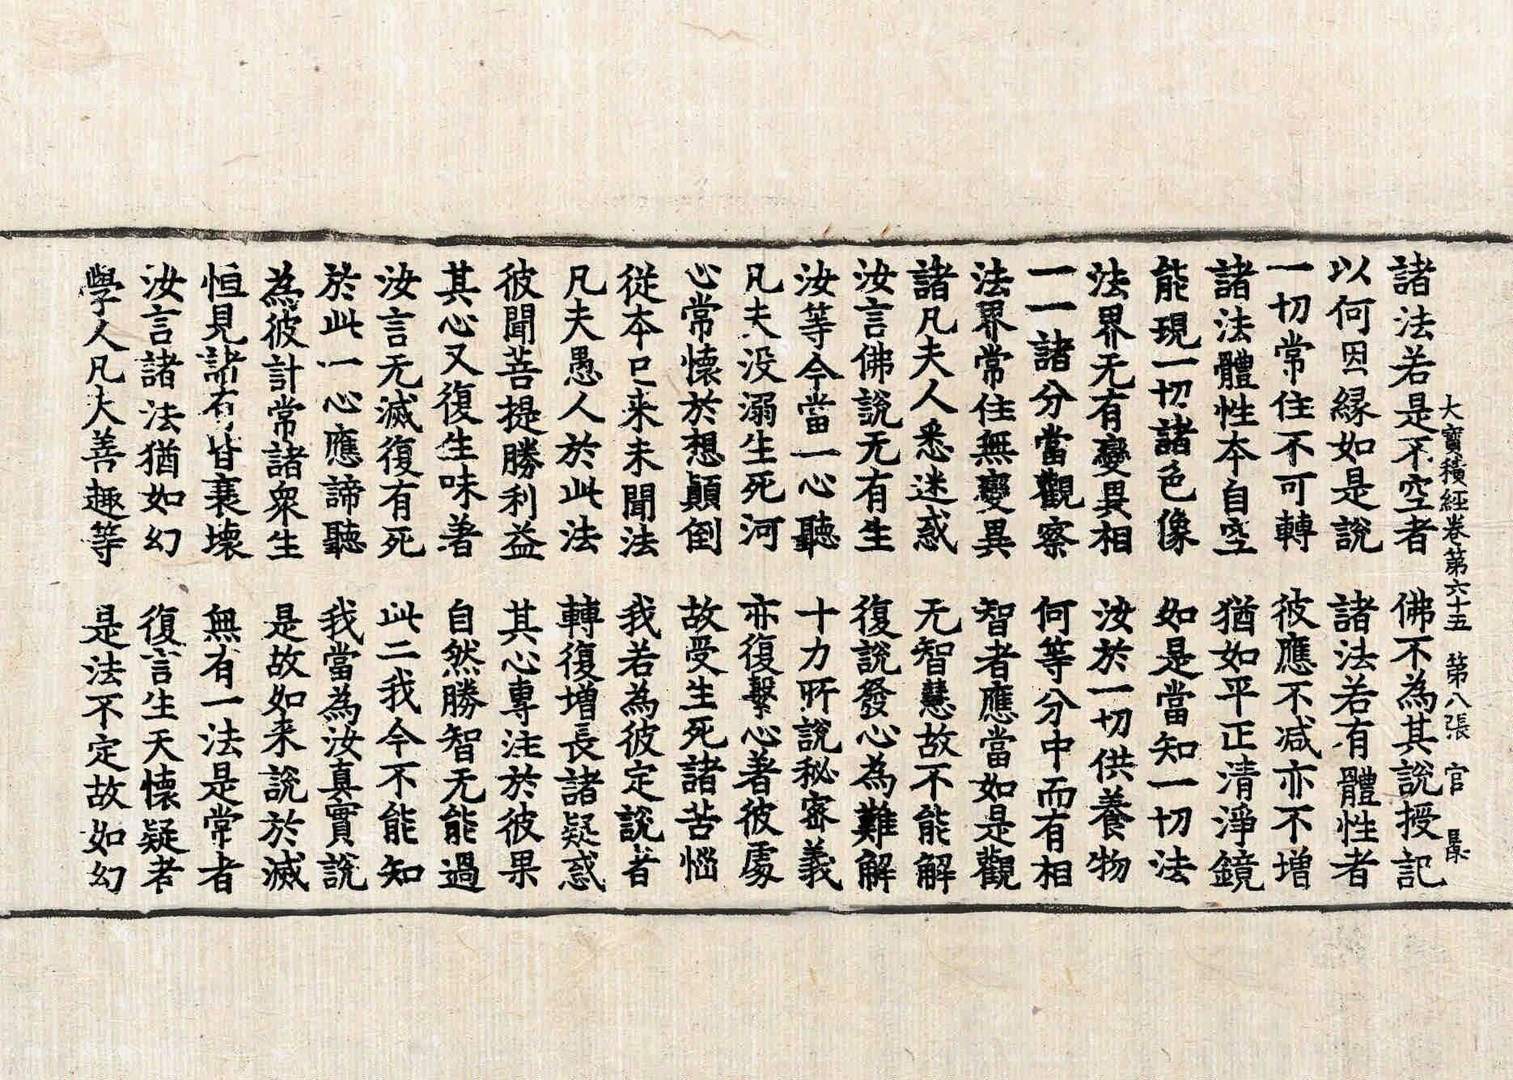 大寶積經卷第六十五 第八張 官
諸法若是不空者 佛不為其說授記
以何因緣如是說 諸法若有體性者
一切常住不可轉 彼應不減亦不增
諸法體性本自空 猶如平正清淨鏡
能現一切諸色像 如是當知一切法
法界无有變異相 汝於一切供養物
一一諸分當觀察 何等分中而有相
法界常住無變異 智者應當如是觀
諸凡夫人悉迷惑 无智慧故不能解
汝言佛說无有生 復說發心為難解
汝等今當一心聽 十力所說秘密義
凡夫没溺生死河 亦復繫心著彼處
心常懷於想顛倒 故受生死諸苦惱
從本已来未聞法 我若為彼定說者
凡夫愚人於此法 轉復增長諸疑惑
彼聞菩提勝利益 其心專注於彼果
其心又復生味著 自然勝智无能過
汝言无滅復有死 此二我今不能知
於此一心應諦聽 我當為汝真實說
為彼計常諸眾生 是故如来說於滅
恒見諸有皆衰壞 無有一法是常者
汝言諸法猶如幻 復言生天懷疑者
學人凡夫善趣等 是法不定故如幻